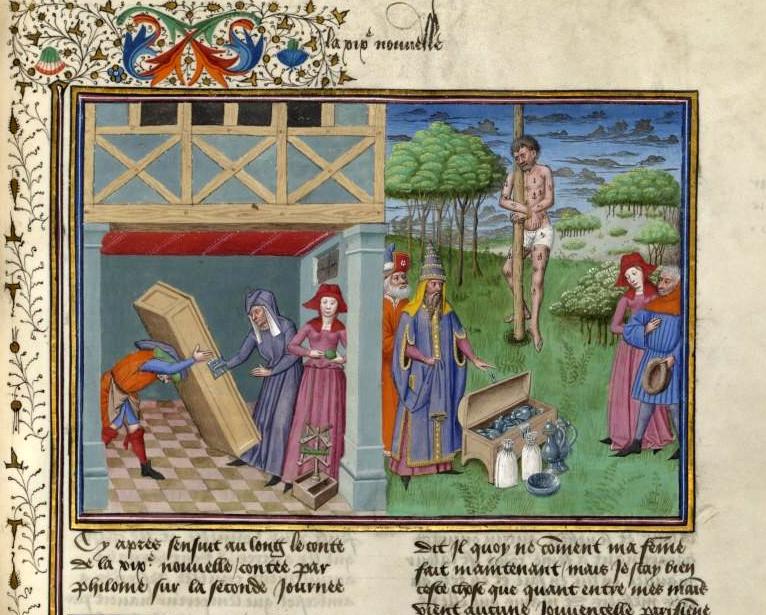 la xix^e nouvelle
Cy apres sensuit au long le conte
de la xix^e nouvelle contee par
philome sur la seconde Journee
dit Il quoy ne cōment ma feme
fait maintenant / mais Je scay bien
ceste chose que quant entre mes mais
vient aucune Jouvencelle parisiene